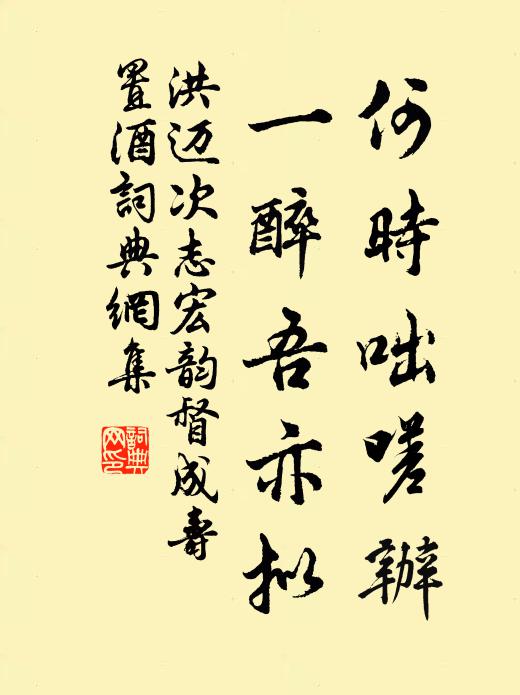 何時咄嗟辦
一醉吾亦拟
洪迈次志宏韵督成壽
置酒詞典網集
詞典网印